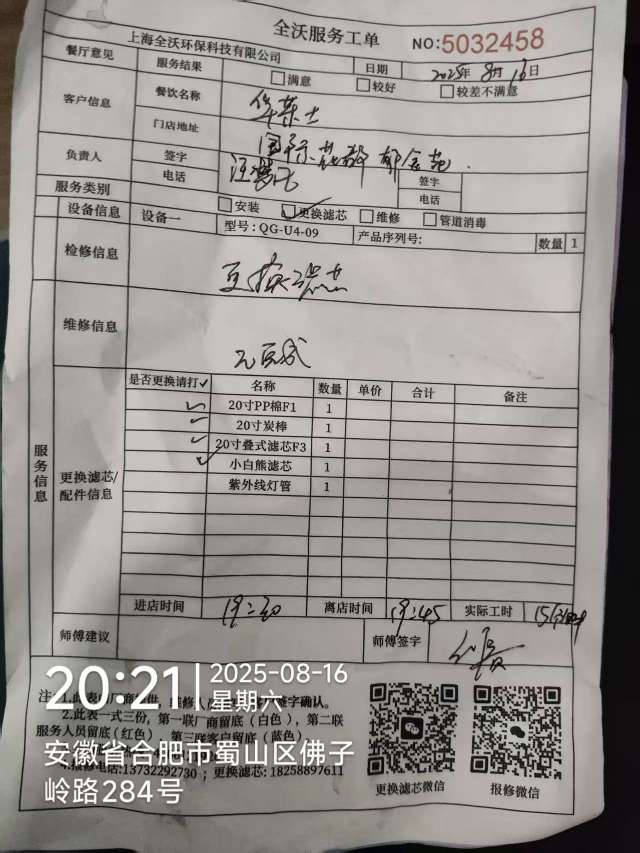 全沃服务工单
NO:5032458
上海全沃环保科技有限公司
日期 2025年8月16日
餐厅意见 服务结果 满意 较好 较差不满意
客户信息 餐饮名称 华莱士
门店地址 国际花都 郁金苑
负责人 签字 签字
电话 电话
服务类别 安装 ✓更换滤芯 维修 管道消毒
设备信息 设备一 型号: QG-U4-09 产品序列号: 数量 1
检修信息 更换滤芯
维修信息 已完成
服务信息
更换滤芯/配件信息
是否更换请打✓ 名称 数量 单价 合计 备注
✓ 20寸PP棉F1 1
✓ 20寸炭棒 1
✓ 20寸叠式滤芯F3 1
✓ 小白熊滤芯 1
紫外线灯管 1
进店时间 19:30 离店时间 19:45 实际工时 15分钟
师傅建议 师傅签字
20:21 2025-08-16
星期六
安徽省合肥市蜀山区佛子
岭路284号
2.此表一式三份，第一联厂商留底（白色），第二联
服务人员留底（红色），第三联客户留底（蓝色）
报修电话:13732292730；更换滤芯: 18258897611
更换滤芯微信
报修微信